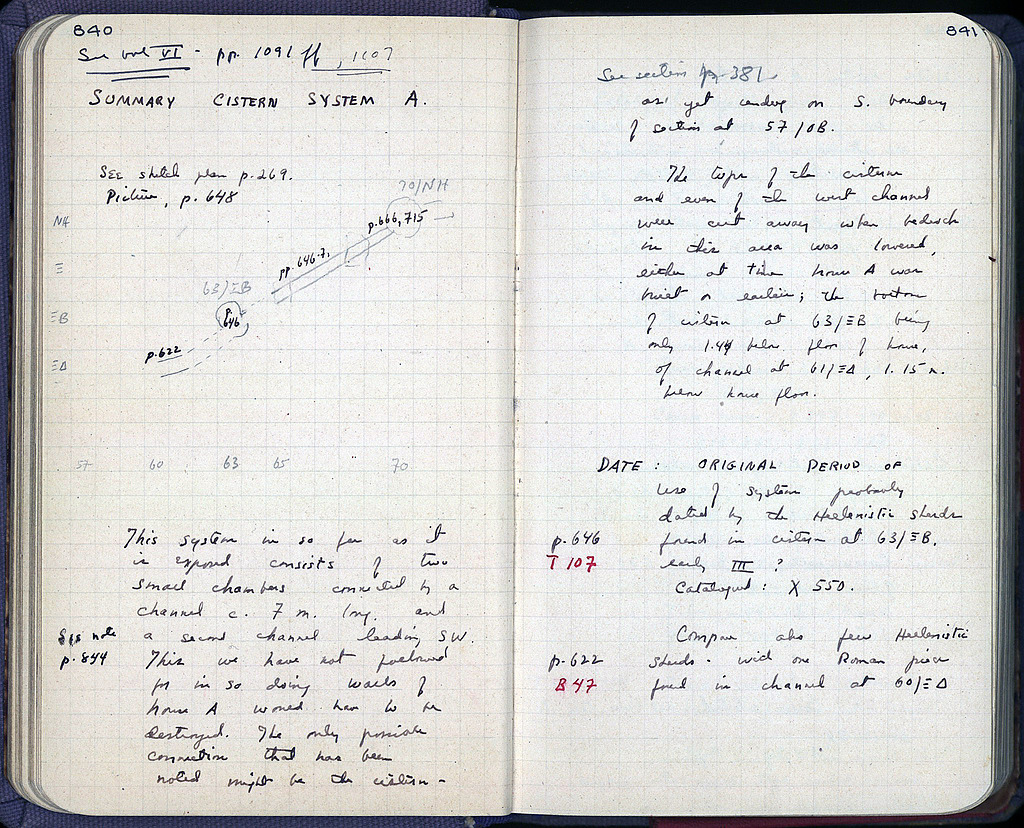 840
See vol VI - pp. 1091 ff, 1107
SUMMARY CISTERN SYSTEM A.
SEE sketch plan p. 269.
Picture, p. 648
70/NH
NH
p. 666, 715
Ξ
pp. 646-7,
63/ΞB
ΞB
p. 646
p. 622
ΞΔ
57 60 63 65 70
This system in so far as it
is exposed consists of two
small chambers connected by a
channel c. 7 m. long and
See note
a second channel leading SW.
p. 844
This we have not followed
for in so doing walls of
house A would have to be
destroyed. The only possible
connection that has been
noted might be the cistern -
841
See section p. 381
as yet ending on S. boundary
of section at 57/ΘB.
The tops of the cistern
and even of the west channel
were cut away when bedrock
in this area was lowered,
either at time house A was
built or earlier; the bottom
of cistern at 63/ΞB being
only 1.44 below floor of house,
of channel at 61/ΞΔ, 1.15 m.
below house floor.
DATE: ORIGINAL PERIOD OF
use of system probably
dated by the Hellenistic sherds
p. 646
found in cistern at 63/ΞB.
T 107
early III ?
Catalogued: X 550.
Compare also few Hellenistic
p. 622
sherds - with one Roman piece
B 47
found in channel at 60/ΞΔ